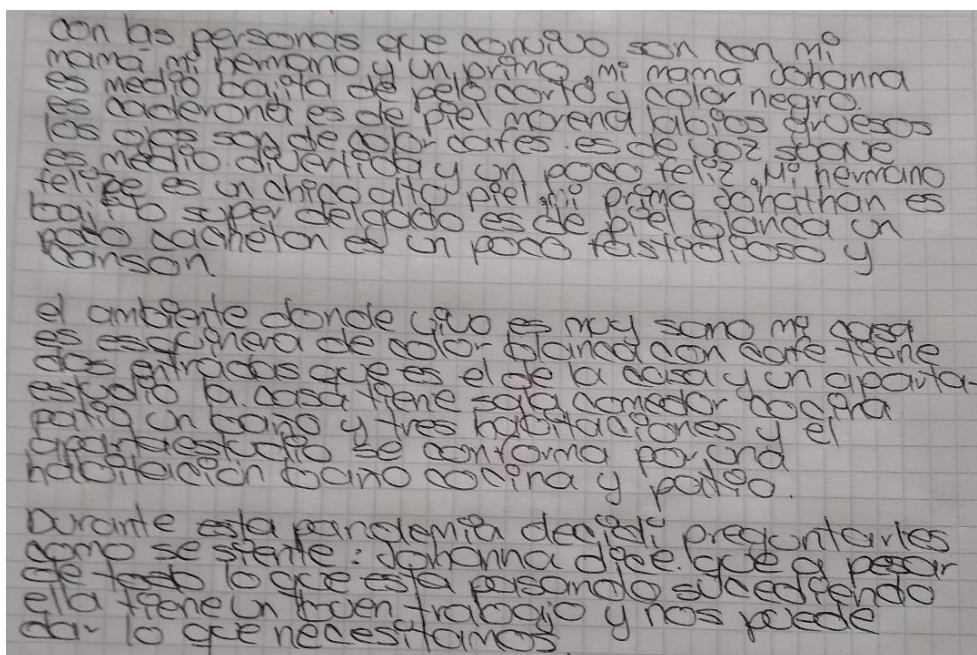 con las personas que convivo son con mi
mama mi hermano y un primo, mi mama Johanna
es medio bajita de pelo corto y color negro.
es caderona es de piel morena labios gruesos
los ojos son de color cafes. es de voz suave
es medio divertida y un poco feliz. Mi hermano
felipe es un chico alto piel mi primo Johathan es
bajito super delgado es de piel blanca un
poco cacheton es un poco fastidioso y
canson.
el ambiente donde vivo es muy sano mi casa
es esquinera de color blanca con cafe tiene
dos entradas que es el de la casa y un aparta
estudio la casa tiene sala comedor cocina
patio un baño y tres habitaciones y el
apartaestudio se conforma por una
habitación baño cocina y patio.
Durante esta pandemia decidi preguntarles
como se siente: Johanna dice que a pesar
de todo lo que esta pasando sucediendo
ella tiene un buen trabajo y nos puede
dar lo que necesitamos.